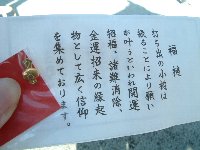 福槌
打ち出の小槌は
振ることにより願い
が叶うといわれ開運
招福、諸難消除、
金運招来の縁起
物として広く信仰
を集めております。